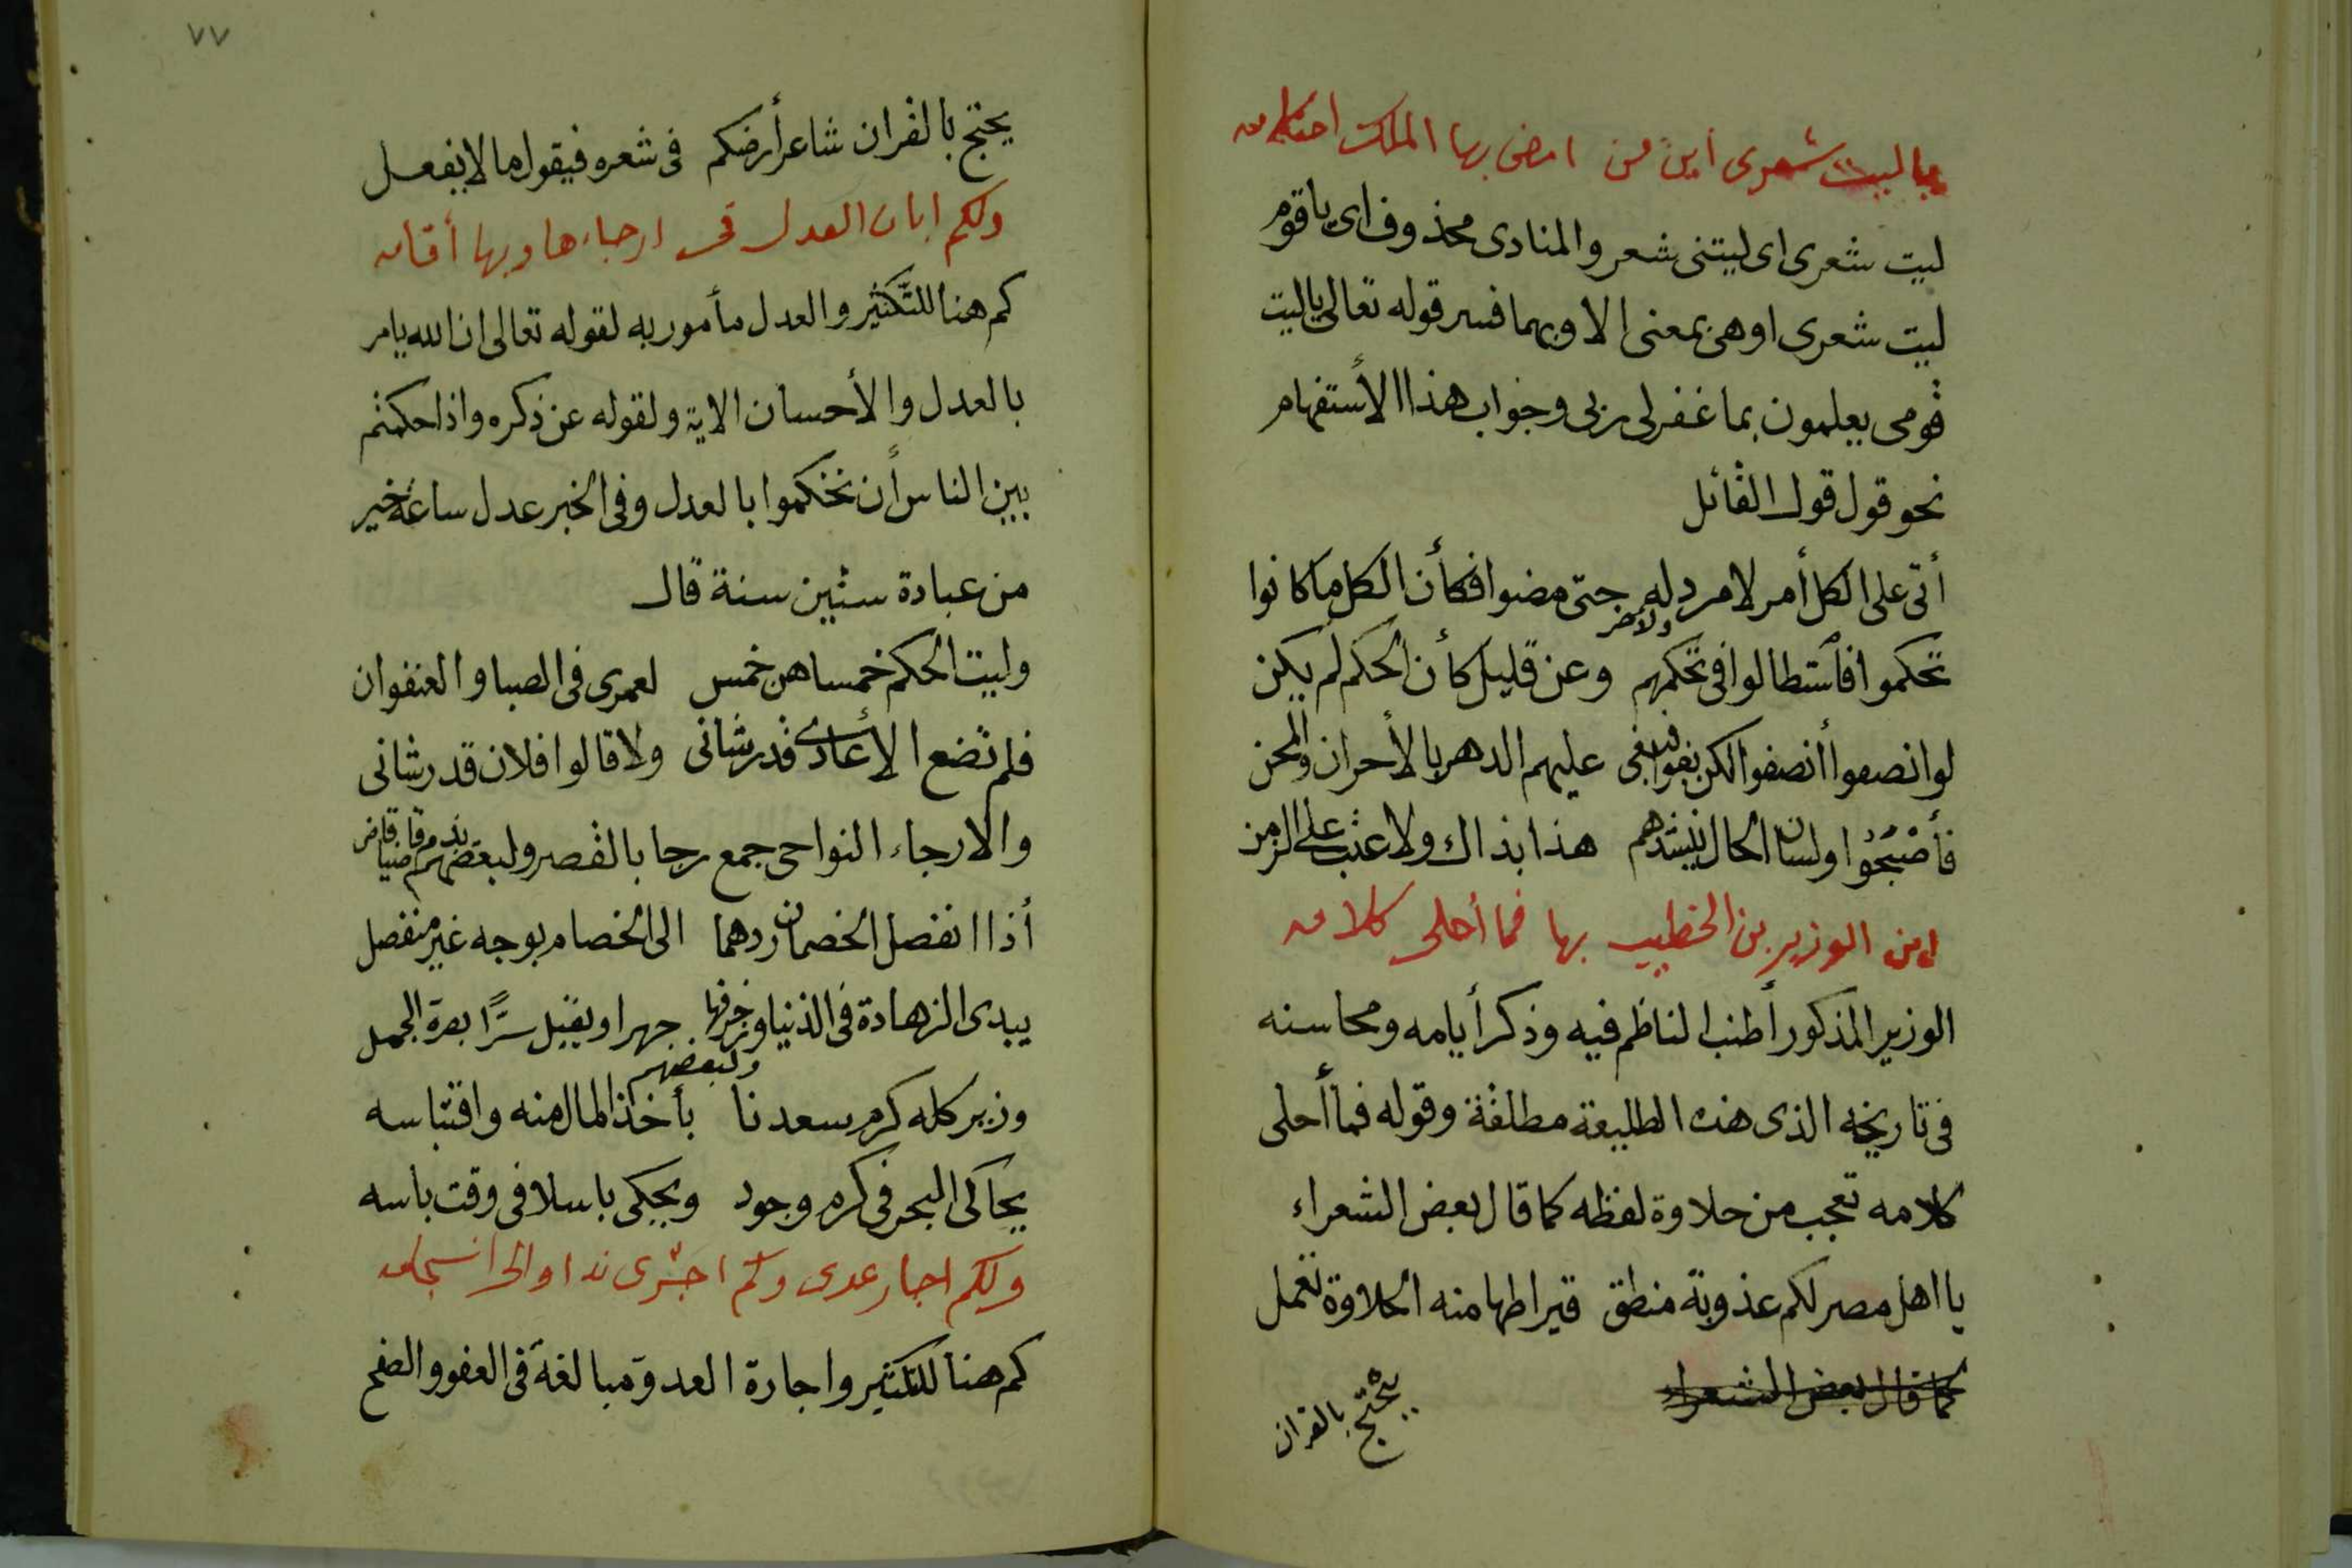 ياليت شعرى اين من امضى بها الملك احتكامه
ليت شعرى اى ليتنى شعر والمنادى محذوف اى ياقوم
ليت شعرى او هى بمعنى الا وبهما فسر قوله تعالى ياليت
قومى يعلمون بما غفر لى ربى وجواب هذا الأستفهام
نحو قول قول القائل
أتى على الكل أمر لا مرد له حتى مضوا فكأن الكل ما كانوا
ولآخر
تحكموا فأستطالوا فى تحكمهم وعن قليل كأن الحكم لم يكن
لو انصفوا أنصفوا لكن بغوا فبغى عليهم الدهر بالأحزان والمحن
فأصبحوا ولسان الحال ينشدهم هذا بذاك ولا عتب على الزمن
اين الوزير بن الخطيب بها فما أحلى كلامه
الوزير المذكور أطنب الناظم فيه وذكر أيامه ومحاسنه
فى تاريخه الذى هذه الطليعة مطلقة وقوله فما أحلى
كلامه تعجب من حلاوة لفظه كما قال بعض الشعراء
يا اهل مصر لكم عذوبة منطق قيراطها منه الحلاوة تعمل
كما قال بعض الشعراء
يحتج بالقران
٧٧
يحتج بالقران شاعر أرضكم فى شعره فيقول ما لا يفعل
ولكم ابان العدل فى ارجاءها وبها أقامه
كم هنا للتكثير والعدل مأمور به لقوله تعالى ان الله يامر
بالعدل والأحسان الاية ولقوله عن ذكره واذا حكمتم
بين الناس أن تحكموا بالعدل وفى الخبر عدل ساعة خير
من عبادة ستين سنة قال
وليت الحكم خمسا هن خمس لعمرى فى الصبا والعنفوان
فلم تضع الأعادى قدر شانى ولا قالوا فلان قد رشانى
والارجاء النواحى جمع رجا بالقصر ولبعضهم يذم قاضيا
أذا انفصل الخصمان ردهما الى الخصام بوجه غير منفصل
يبدى الزهادة فى الدنيا وزخرفها جهرا ويقبل سرًا بعرة الجمل
ولبعضهم
وزير كله كرم سعدنا بأخذ المال منه واقتباسه
يحاكى البحر فى كرم وجود ويحكى باسلا فى وقت باسه
ولكم اجار عدى وكم اجرى ندا والى انسجامه
كم هنا للتكثير واجارة العدو مبالغة فى العفو والصفح